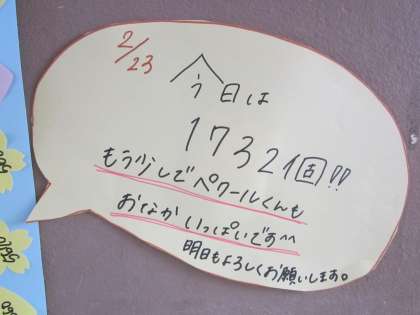 2/23
今日は
17321個!!
もう少しでペワールくんも
おなかいっぱいです^^
明日もよろしくお願いします。